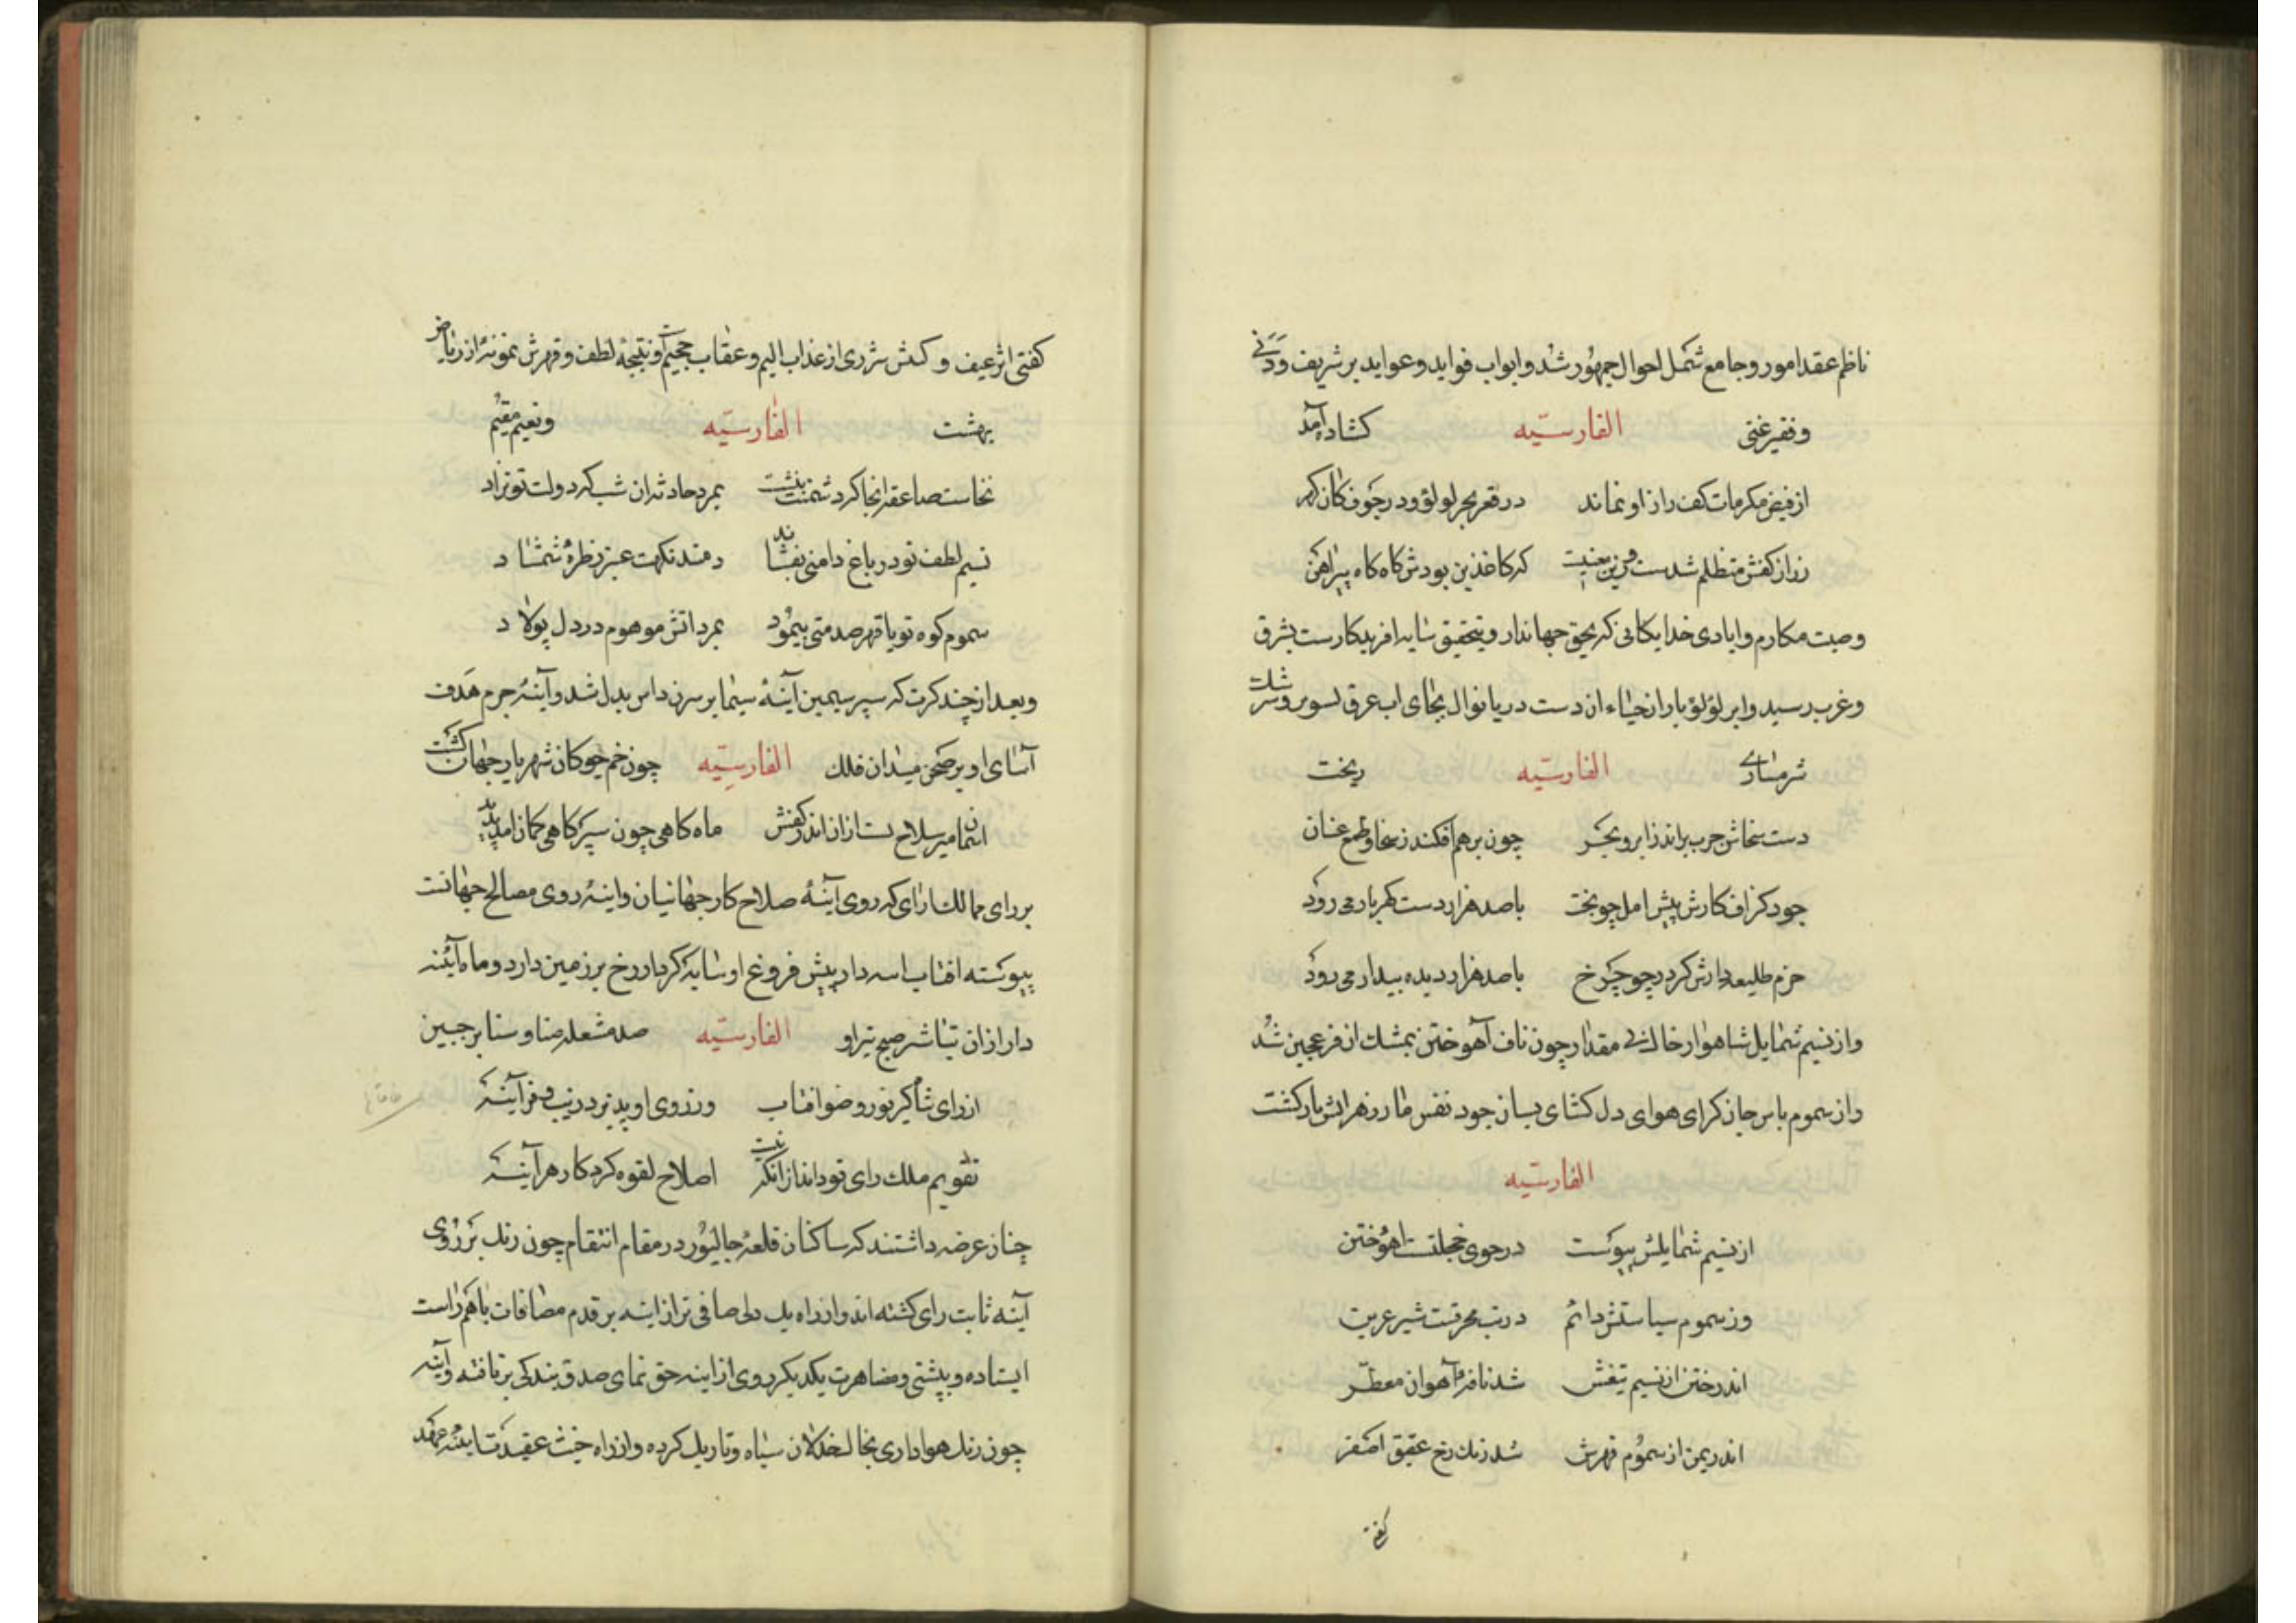 ناظم عقد امور و جامع شمل احوال جمهور شد و ابواب فواید و عواید بر شریف و دنی
و فقیر غنی الفارسیّه کشاده آمد
از فیض مکرمات کفت راز او نماند در قعر بحر لولو و در جوف کان کهر
زر از کفش متظلم شدست که کاغذین بودش کاه کاه پیراهن
وصیت مکارم و ایادی خدایکانی که بحق جهاندار و بتحقیق سایه افریدکارست بشرق
و غرب رسید و ابر لؤلؤ بار از حیاء ان دست دریا نوال بجای اب عرق تسویر و سرشک
شرمساری الفارسیّه ریخت
دست سخاش جرب براند ز ابر و بحر چون بر هم افکند ز سخا و طمع عنان
جود کزاف کارش پیش امل چو بخت با صد هزار دست کهربار می رود
حزم طلیعه دارش کرد چو چرخ با صد هزار دیده بیدار می رود
و از نسیم شمایل شاهوار خاک بی مقدار چون ناف آهو ختن بمشک اذفر عجین شد
و از سموم باس جان کزای هوای دل کشای بسان جود نفس مار زهرافش بار کشت
الفارسیّه
از نسیم شمایلش پیوست در خوی خجلتست اهو ختن
وز سموم سیاستش دائم در تب محرقت شیر عرین
اندر ختن از نسیم تیغش شد نافهٔ آهوان معطّر
اندر یمن از سموم قهرش شد زنک رخ عقیق اصفر
کفتی
کفتی اثر عیف و کش شرری از عذاب الیم و عقاب جحیم و نتیجهٔ لطف و قهرش نمونهٔ از ریاض
بهشت الفارسیّه و نعیم مقیم
نخاست صاعقه انجا که دشمنت بنشت بمرد حادثه ان شب که دولت تو بزاد
نسیم لطف تو در باغ دامنی بفشاند دمند نکهت عنبر ز طرهٔ شمشاد
سموم کوه تو با قهر صدمتی بنمود بمرد اتش موهوم در دل پولاد
و بعد از چند کرت که سپر سیمین آینهٔ سیما بر سر زن داس بدل شد و آینهٔ جرم هدف
آسای او بر صحن میدان فلک الفارسیّه چون خم چوکان شهریار جهان کشت
اسمان میر سلاح است ازان اندر کفش ماه کاهی چون سپر کاهی کمان امد پدید
بر رای ممالک ارای که روی آینهٔ صلاح کار جهانیان و اینهٔ روی مصالح جهانست
پیوسته افتاب اسه دار پیش فروغ او سایه کردار رخ بر زمین دارد و ماه آینه
دار ازان تباشر صبح تیر او الفارسیّه صد مشعله ضنا و سنا بر جبین
از رای شاکیر نور و ضو افتاب وز روی او پدیرد زیب و فر آینه
تقویم ملک رای تو داند از انک نیست اصلاح لقوه کرد کار هر آینه
چنان عرضه داشتند که ساکنان قلعهٔ جالیور در مقام انتقام چون زنک بر روی
آینه ثابت رای کشته اند و از راه یک دلی صافی تر از اینه بر قدم مصافات با هم راست
ایستاده و بپشتی و مضاهرت یکدیکر روی از اینه حق نمای صدق بندکی برتافته و آینه
چون زنک هواداری بخال خذلان سیاه و تاریک کرده و از راه خبث عقیدت